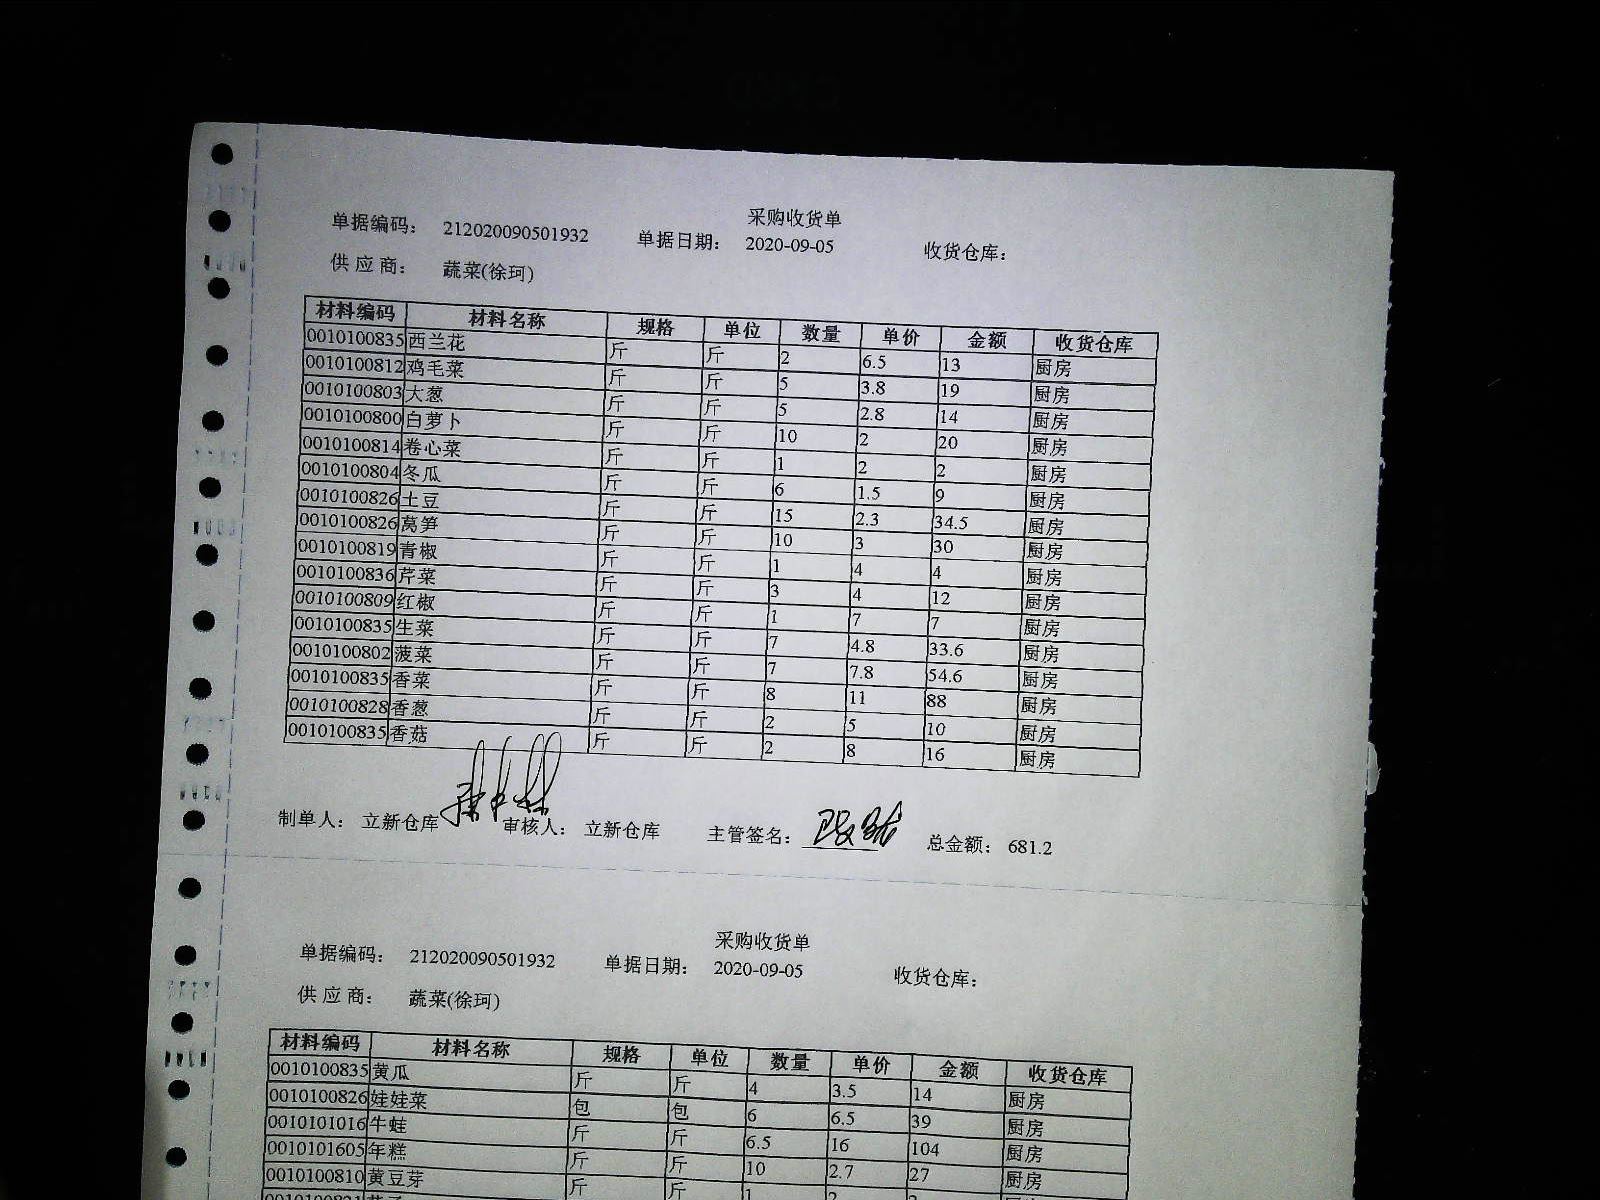 采购收货单
单据编码： 212020090501932 单据日期： 2020-09-05 收货仓库：
供 应 商： 蔬菜(徐珂)
材料编码 材料名称 规格 单位 数量 单价 金额 收货仓库
0010100835 西兰花 斤 斤 2 6.5 13 厨房
0010100812 鸡毛菜 斤 斤 5 3.8 19 厨房
0010100803 大葱 斤 斤 5 2.8 14 厨房
0010100800 白萝卜 斤 斤 10 2 20 厨房
0010100814 卷心菜 斤 斤 1 2 2 厨房
0010100804 冬瓜 斤 斤 6 1.5 9 厨房
0010100826 土豆 斤 斤 15 2.3 34.5 厨房
0010100826 莴笋 斤 斤 10 3 30 厨房
0010100819 青椒 斤 斤 1 4 4 厨房
0010100836 芹菜 斤 斤 3 4 12 厨房
0010100809 红椒 斤 斤 1 7 7 厨房
0010100835 生菜 斤 斤 7 4.8 33.6 厨房
0010100802 菠菜 斤 斤 7 7.8 54.6 厨房
0010100835 香菜 斤 斤 8 11 88 厨房
0010100828 香葱 斤 斤 2 5 10 厨房
0010100835 香菇 斤 斤 2 8 16 厨房
制单人： 立新仓库 审核人： 立新仓库 主管签名： 总金额： 681.2
采购收货单
单据编码： 212020090501932 单据日期： 2020-09-05 收货仓库：
供 应 商： 蔬菜(徐珂)
材料编码 材料名称 规格 单位 数量 单价 金额 收货仓库
0010100835 黄瓜 斤 斤 4 3.5 14 厨房
0010100826 娃娃菜 包 包 6 6.5 39 厨房
0010101016 牛蛙 斤 斤 6.5 16 104 厨房
0010101605 年糕 斤 斤 10 2.7 27 厨房
0010100810 黄豆芽 斤 斤 1 2 2 厨房